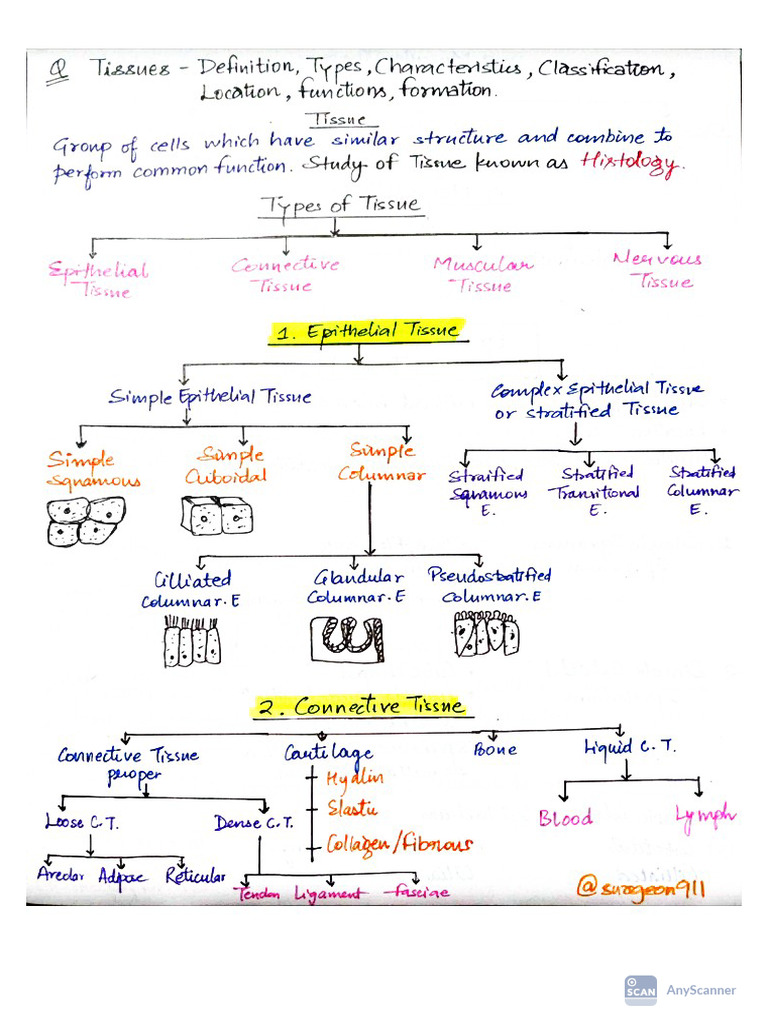 Q Tissues - Definition, Types, Characteristics, Classification,
Location, functions, formation.
Tissue
Group of cells which have similar structure and combine to
perform common function. Study of Tissue known as Histology.
Types of Tissue
Epithelial Tissue
Connective Tissue
Muscular Tissue
Nervous Tissue
1. Epithelial Tissue
Simple Epithelial Tissue
Complex Epithelial Tissue
or stratified Tissue
Simple Squamous
Simple Cuboidal
Simple Columnar
Straified Squamous E.
Stratified Transitional E.
Stratified Columnar E.
Cilliated Columnar.E
Glandular Columnar.E
Pseudostratified Columnar.E
2. Connective Tissue
Connective Tissue proper
Cartilage
Bone
Liquid C.T.
Hyalin
Elastic
Collagen/fibrous
Blood
Lymph
Loose C.T.
Dense C.T.
Areolar Adipose Reticular
Tendon Ligament fasciae
@surgeon911
SCAN AnyScanner